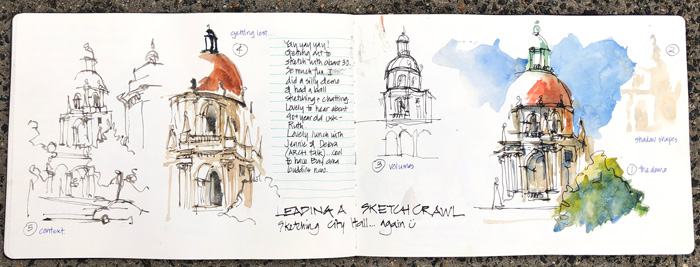 getting lost...
④
Yay yay yay!
Getting out to
sketch with about 30.
So much fun. I
did a silly demo
& had a ball
sketching & chatting.
Lovely to hear about
90+ year old USK-
Ruth.
Lovely lunch with
Jennie & Debra
(ARCH talk)... cool
to have Bay area
buddies now.
⑤ context
③ volumes
②
shadow shapes
① the demo
LEADING A SKETCHCRAWL
Sketching City Hall... again